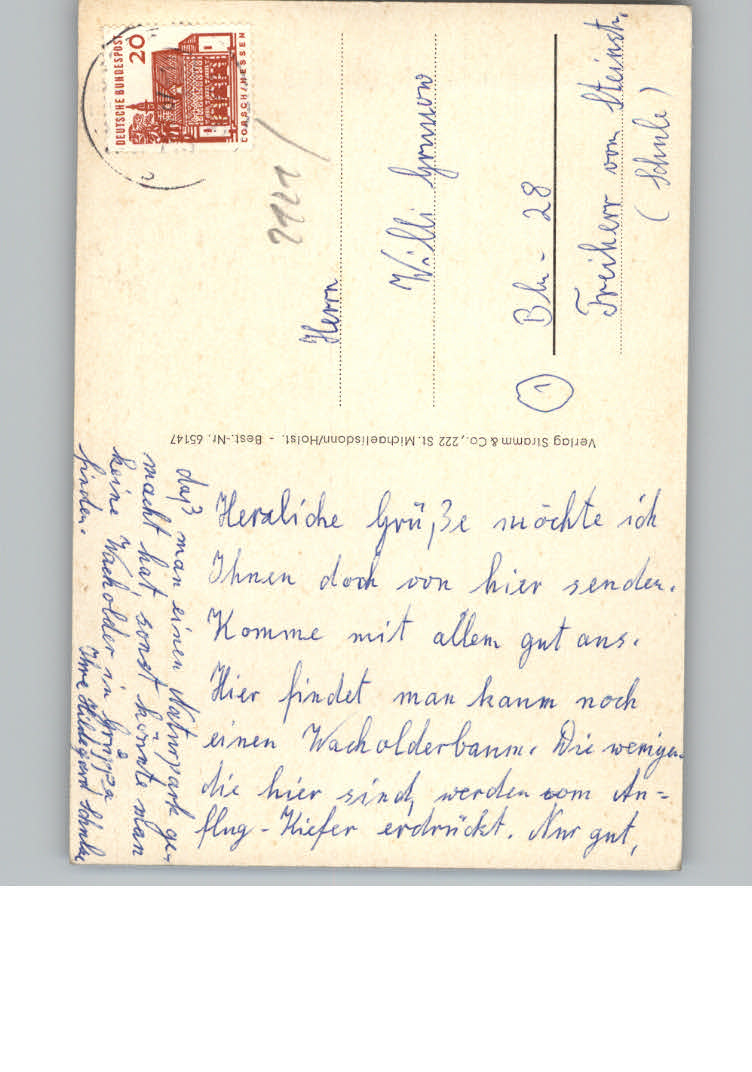 Herzliche Grüße möchte ich
Ihnen doch von hier senden.
Komme mit allem gut aus.
Hier findet man kaum noch
einen Wacholderbaum. Die wenigen
die hier sind, werden vom An=
flug-Kiefer erdrückt. Nur gut,
daß man einen Naturpark ge-
macht hat sonst könnte man
keine Wacholder in
finden.
Ihre Hildegard
Verlag Stramm & Co., 222 St. Michaelisdonn/Holst. - Best.-Nr. 65147
DEUTSCHE BUNDESPOST
20
LORSCH/HESSEN
Herrn
Willi Grunow
1
Bln-28
Freiherr vom Steinstr.
(Schule)